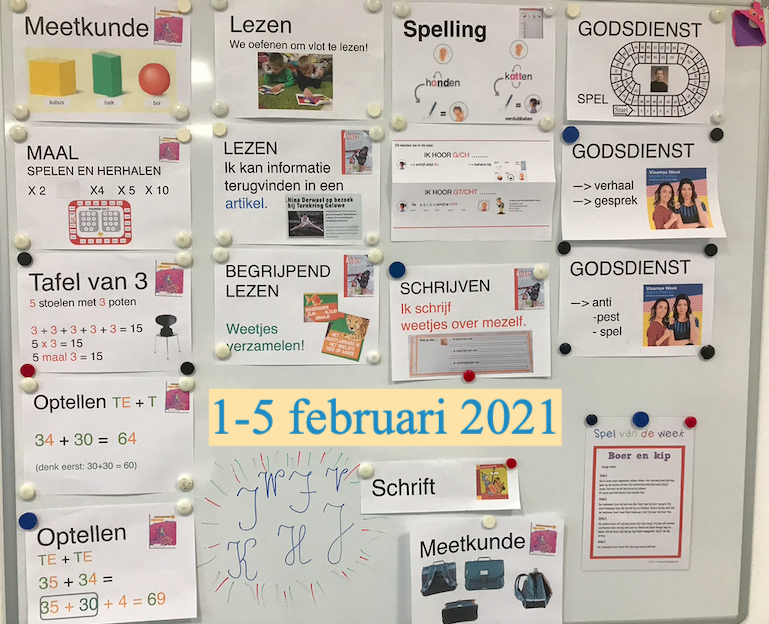 Meetkunde
kubus
balk
bol
MAAL
SPELEN EN HERHALEN
X 2 X4 X 5 X 10
Tafel van 3
5 stoelen met 3 poten
3 + 3 + 3 + 3 + 3 = 15
5 x 3 = 15
5 maal 3 = 15
Optellen TE + T
34 + 30 = 64
(denk eerst: 30+30 = 60)
Optellen
TE + TE
35 + 34 =
35 + 30 + 4 = 69
Lezen
We oefenen om vlot te lezen!
LEZEN
Ik kan informatie
terugvinden in een
artikel.
Nina Derwael op bezoek
bij Turnkring Geluwe
BEGRIJPEND
LEZEN
Weetjes
verzamelen!
1-5 februari 2021
J W F V
K H J
Spelling
honden
katten
verdubbelen
IK HOOR G/CH
IK HOOR GT/CHT
SCHRIJVEN
Ik schrijf
weetjes over mezelf.
Schrift
Meetkunde
GODSDIENST
SPEL
Start
GODSDIENST
—> verhaal
—> gesprek
Vlaamse Week
GODSDIENST
—> anti
-pest
- spel
Vlaamse Week
Spel van de week
Boer en kip